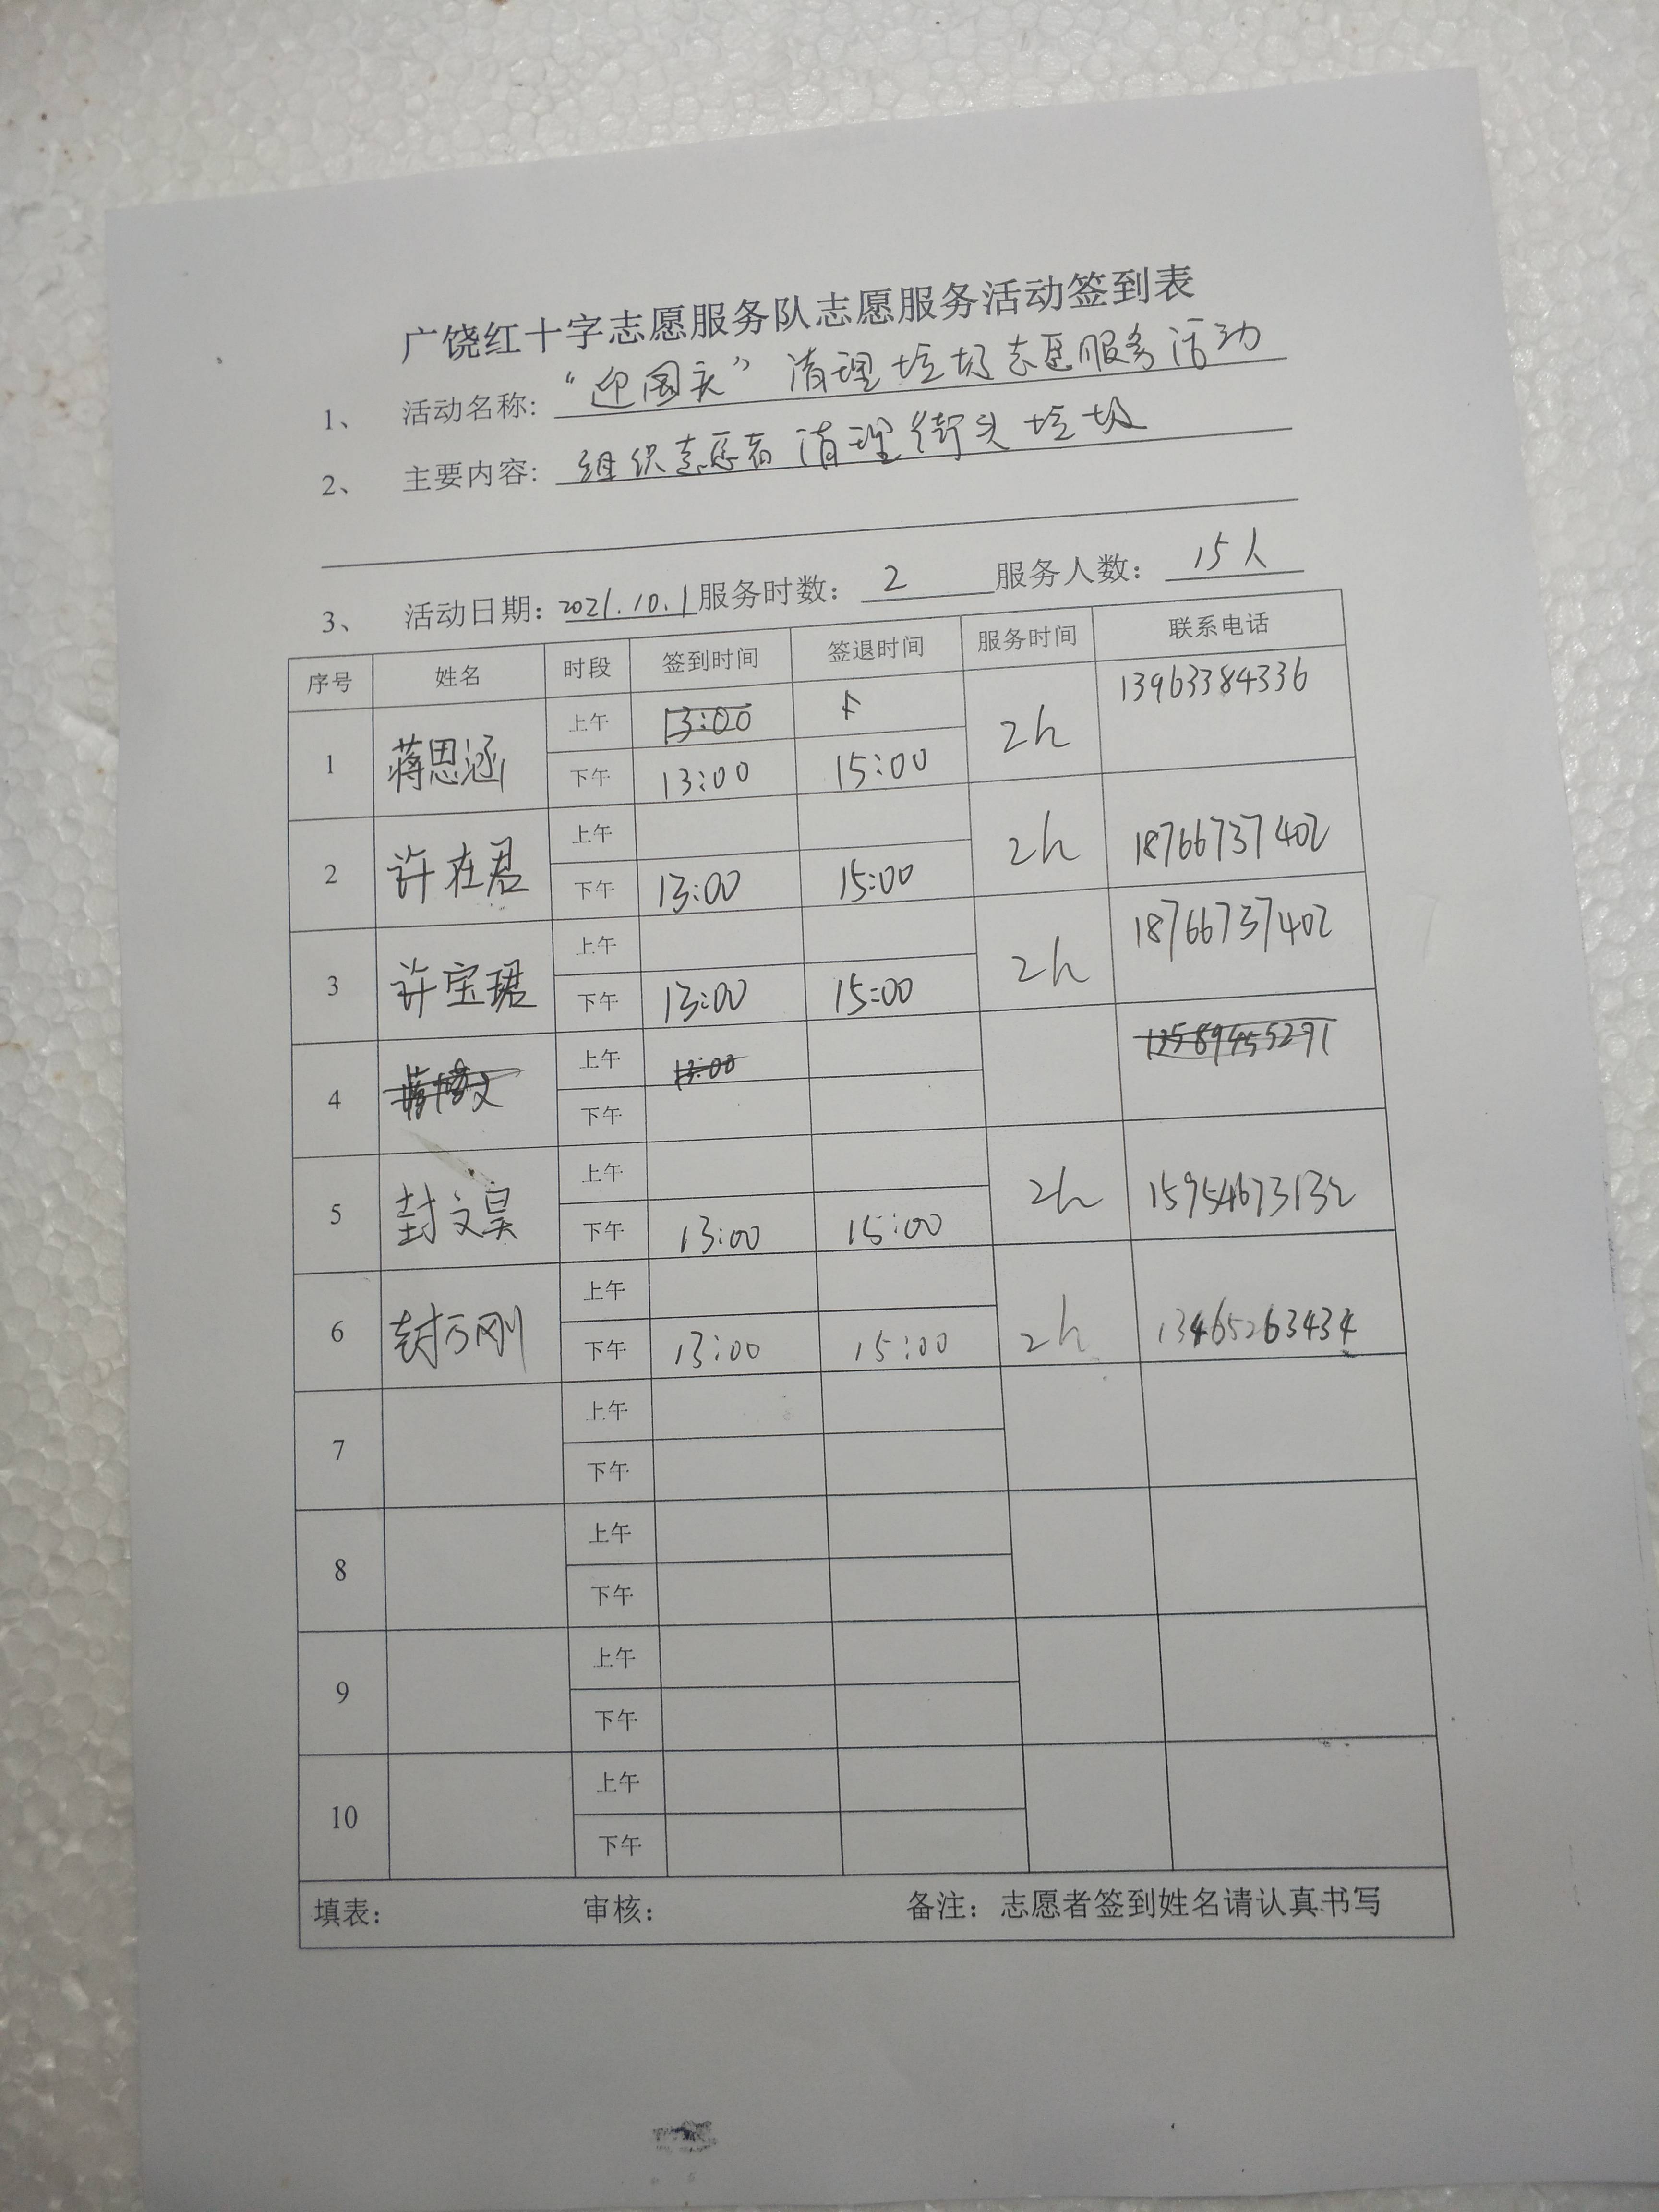 广饶红十字志愿服务队志愿服务活动签到表
1、 活动名称: “迎国庆”清理垃圾志愿服务活动
2、 主要内容: 组织志愿者清理街头垃圾
3、 活动日期: 2021.10.1 服务时数: 2 服务人数: 15人
序号 姓名 时段 签到时间 签退时间 服务时间 联系电话
1 蒋思涵 上午 13:00 2h 13963384336
下午 13:00 15:00
2 许在君 上午 2h 18766737402
下午 13:00 15:00
3 许宝珺 上午 2h 18766737402
下午 13:00 15:00
4 上午 13:00
下午
5 封文昊 上午 2h 15954673132
下午 13:00 15:00
6 封万刚 上午 2h 13465263434
下午 13:00 15:00
7 上午
下午
8 上午
下午
9 上午
下午
10 上午
下午
填表: 审核: 备注: 志愿者签到姓名请认真书写